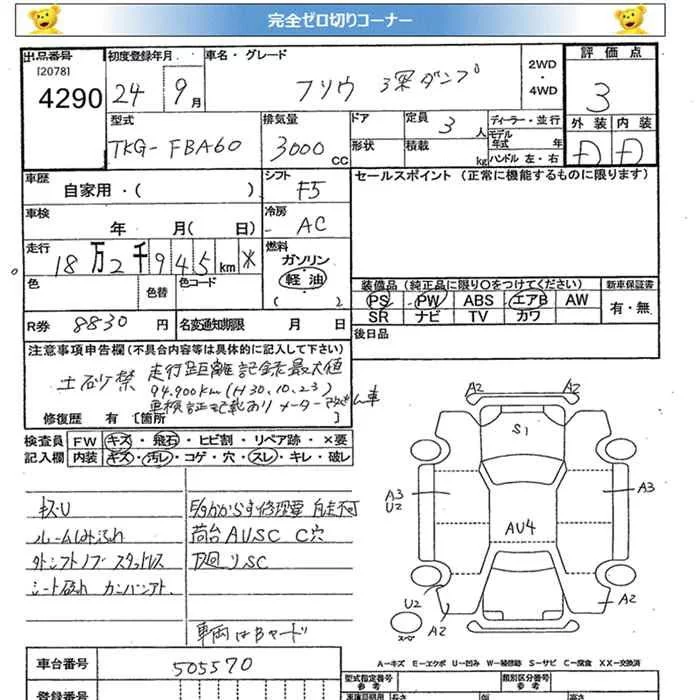 完全ゼロ切りコーナー
出品番号
[2078]
4290
初度登録年月
24 9月
車名・グレード
フソウ 3深ダンプ
2WD
・
4WD
評価点
3
型式
TKG-FBA60
排気量
3000cc
ドア
定員
3人
形状
積載
kg
ディーラー・並行
モデル年式 年
ハンドル 左・右
外装 内装
D D
車歴
自家用・( )
シフト
F5
セールスポイント (正常に機能するものに限ります)
車検
年 月( 日)
冷房
AC
走行
18万2千945km ※
燃料
ガソリン
軽油
( )
色
色替
色コード
装備品(純正品に限り○をつけてください)
PS PW ABS エアB AW
SR ナビ TV カワ
新車保証書
有・無
R券 8830円
名変通知期限 月 日
後日品
注意事項申告欄(不具合内容等は具体的に記入して下さい)
土砂禁 走行距離記録最大値
94,900km(H30.10.23)
車検証記載あり
修復歴 有 [箇所 ]
検査員 FW キズ・飛石・ヒビ割・リペア跡・×要
記入欄 内装 キズ・汚レ・コゲ・穴・スレ・キレ・破レ
キズU
ルームしみ汚れ
外シフトノブ スタッドレス
荷台AUSC C穴
下廻りSC
車両はBヤード
A2 A2
S1
A3
U2
A3
AU4
U2
A2
A2
スペア
A－キズ E－エクボ U－凹み W－補修跡 S－サビ C－腐食 XX－交換済
車台番号
505570
型式指定番号
参考
類別区分番号
参考
登録番号